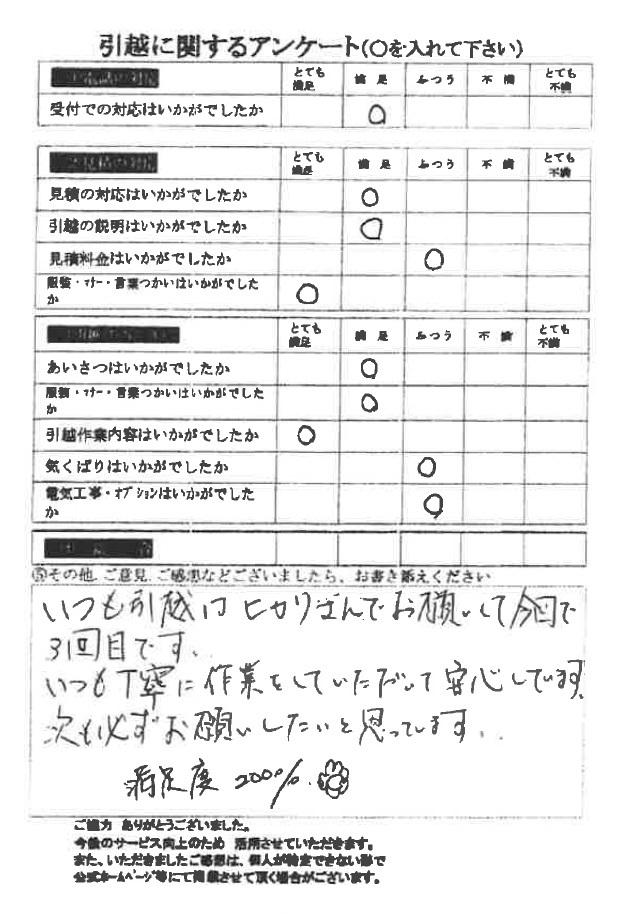 引越に関するアンケート(〇を入れて下さい)
とても満足 満足 ふつう 不満 とても不満
受付での対応はいかがでしたか 〇
とても満足 満足 ふつう 不満 とても不満
見積の対応はいかがでしたか 〇
引越の説明はいかがでしたか 〇
見積料金はいかがでしたか 〇
服装・マナー・言葉つかいはいかがでした
か 〇
とても満足 満足 ふつう 不満 とても不満
あいさつはいかがでしたか 〇
服装・マナー・言葉つかいはいかがでした
か 〇
引越作業内容はいかがでしたか 〇
気くばりはいかがでしたか 〇
電気工事・オプションはいかがでした
か 〇
⑤その他、ご意見、ご感想などございましたら、お書き添えください
いつも引越はヒカリさんでお願いして今回で
3回目です。
いつも丁寧に作業をしていただいて安心しています。
次も必ずお願いしたいと思っています。
満足度 200%
ご協力 ありがとうございました。
今後のサービス向上のため 活用させていただきます。
また、いただきましたご感想は、個人が特定できない形で
公式ホームページ等にて掲載させて頂く場合がございます。